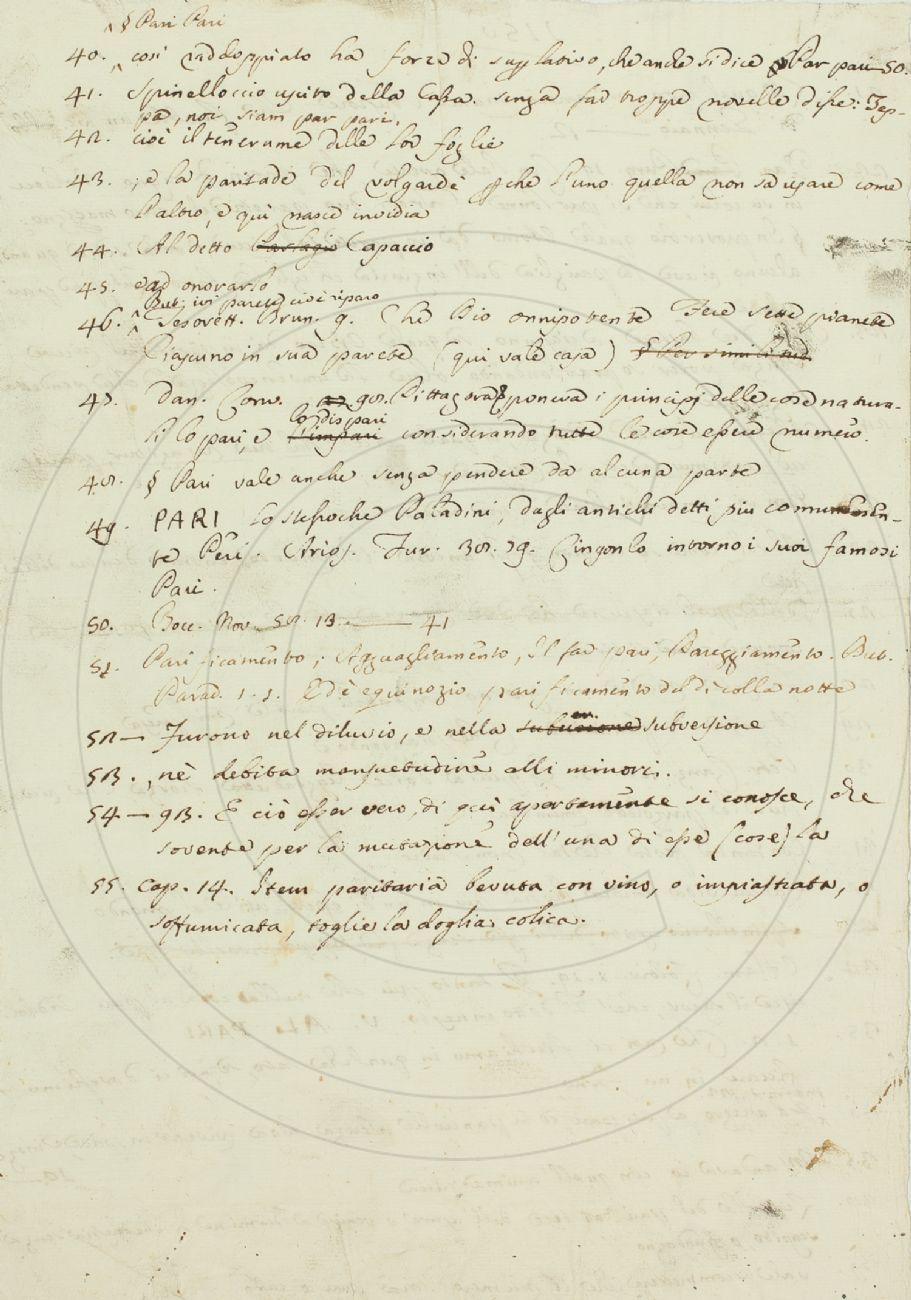 § Pari Pari
40. così raddoppiato ha forza di suplativo, che anche si dice Par pari 50.
41. Spinelloccio uscito della Cassa senza far troppe novelle disse: Zep-
pa, noi siam par pari.
42. cioè il tenerume delle lor foglie
43. ; e la paritade del volgare è pche l'uno quella non sa usare come
l'altro, e qui nasce invidia
44. Al detto Capaccio
45. e ad onorarlo
But. ivi parete cioè riparo
46. Tesorett. Brun. 9. Che Dio onnipotente Fece sette pianete
Ciascuno in sua parete (qui vale casa) § Per similitud.
47. Dan. Conv. 90. Pittagora poneva i principj delle cose natura-
lo dispari
li lo pari, e l'impari considerando tutte le cose essere numero.
48. § Pari vale anche senza pendere da alcuna parte
49. PARI Lo stesso che Paladini, dagli antichi detti piu comunemen-
te Peri. Arios. Fur. 38. 79. Cingonlo intorno i suoi famosi
Pari.
50. Bocc. Nov. 58. 13. —— 41
51. Parificamento, Agguagliamento, Il far pari, Pareggiamento. But.
Parad. 1. 1. Ed è equinozio parificamento del dì colla notte
52 — Furono nel diluvio, e nella subversione
53. , nè debita mansuetudine alli minori.
54 — 93. E ciò esser vero, di qui apertamente si conosce, che
sovente per la mutazione dell'una di esse (cose) la
55. cap. 14. Item paritaria bevuta con vino, o impiastrata, o
soffumicata, toglie la doglia colica.